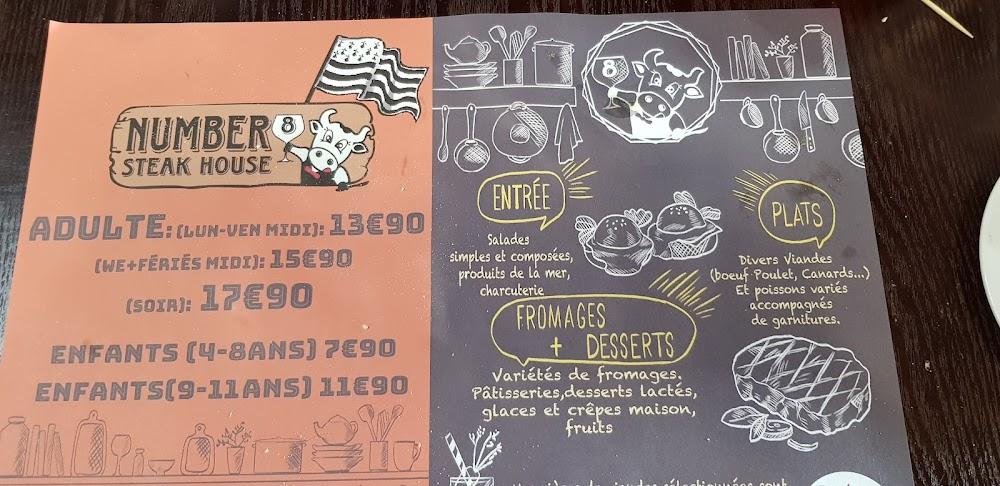 NUMBER 8
STEAK HOUSE
ADULTE: (LUN-VEN MIDI): 13€90
(WE+FÉRIÉS MIDI): 15€90
(SOIR): 17€90
ENFANTS (4-8ANS) 7€90
ENFANTS(9-11ANS) 11€90
8
ENTRÉE
Salades
simples et composées,
produits de la mer,
charcuterie
PLATS
Divers Viandes
(boeuf Poulet, Canards...)
Et poissons variés
accompagnés
de garnitures.
FROMAGES
+ DESSERTS
Variétés de fromages.
Pâtisseries,desserts lactés,
glaces et crêpes maison,
fruits